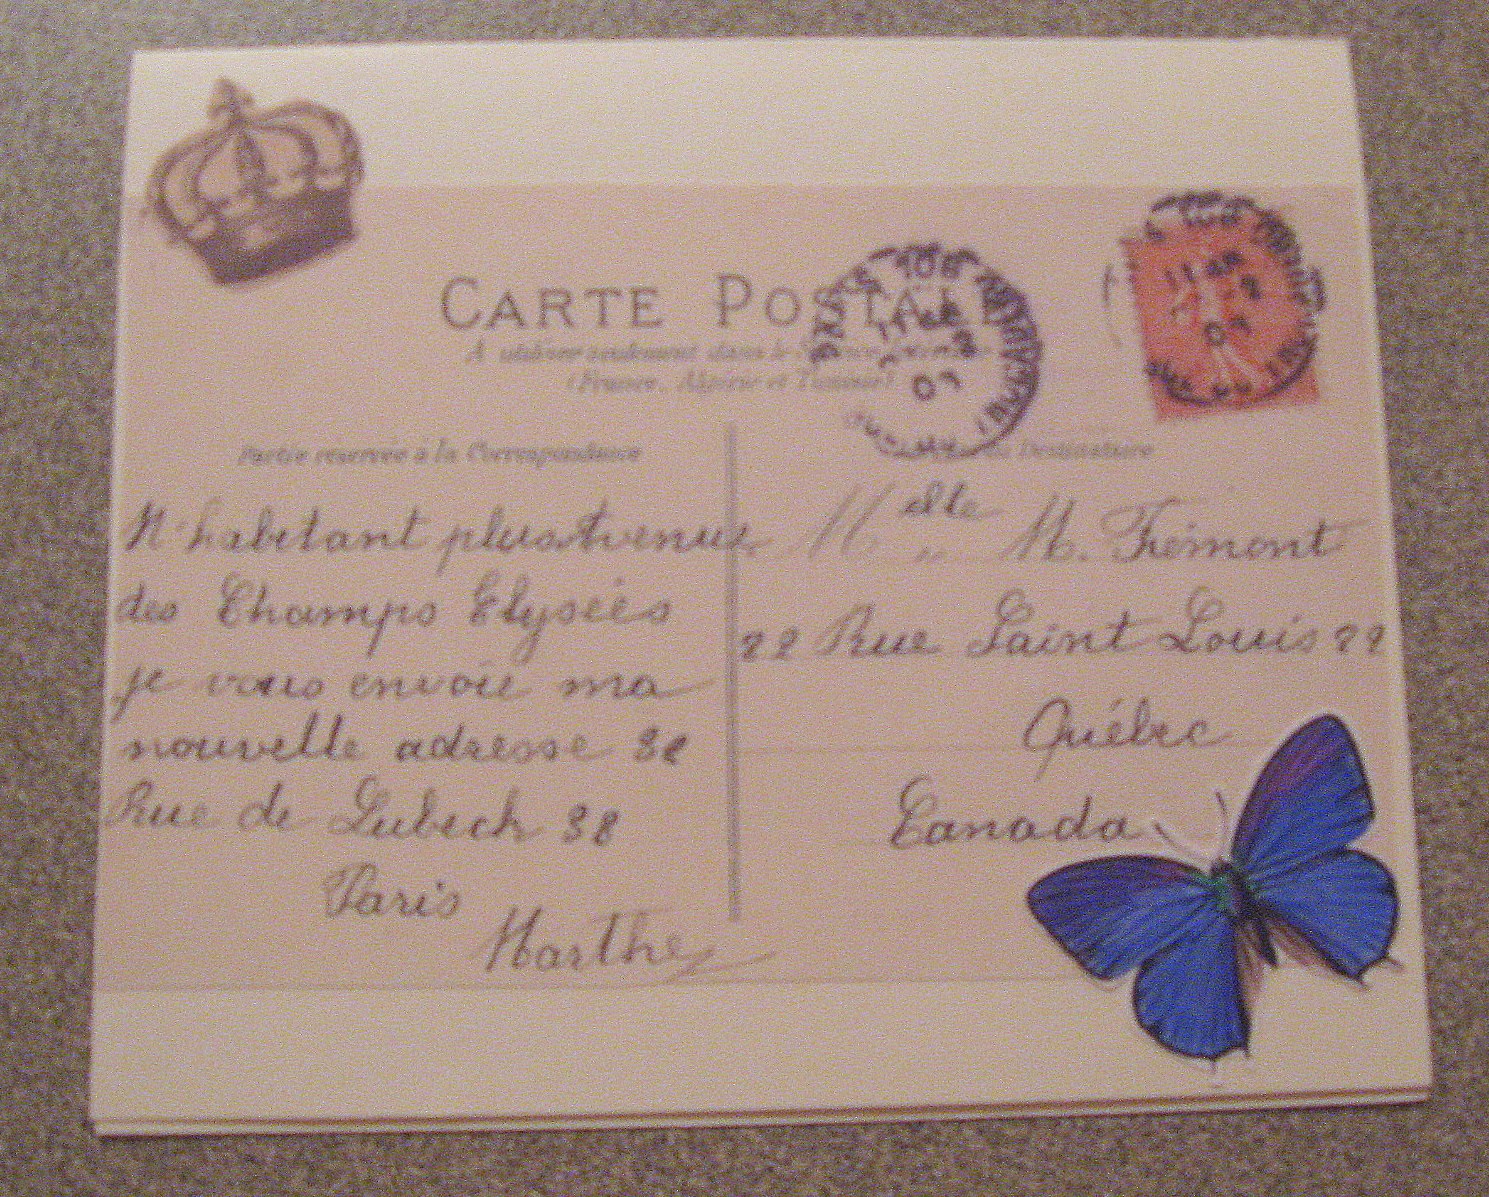 CARTE POSTALE
A utiliser seulement dans le Service
(France, Algérie et Tunisie)
Partie réservée à la Correspondance
Destinataire
N'habitant plus Avenue
des Champs Elysées
je vous envoie ma
nouvelle adresse 38
Rue de Lubeck 38
Paris
Marthe
Melle M. Frémont
22 Rue Saint Louis 22
Québec
Canada